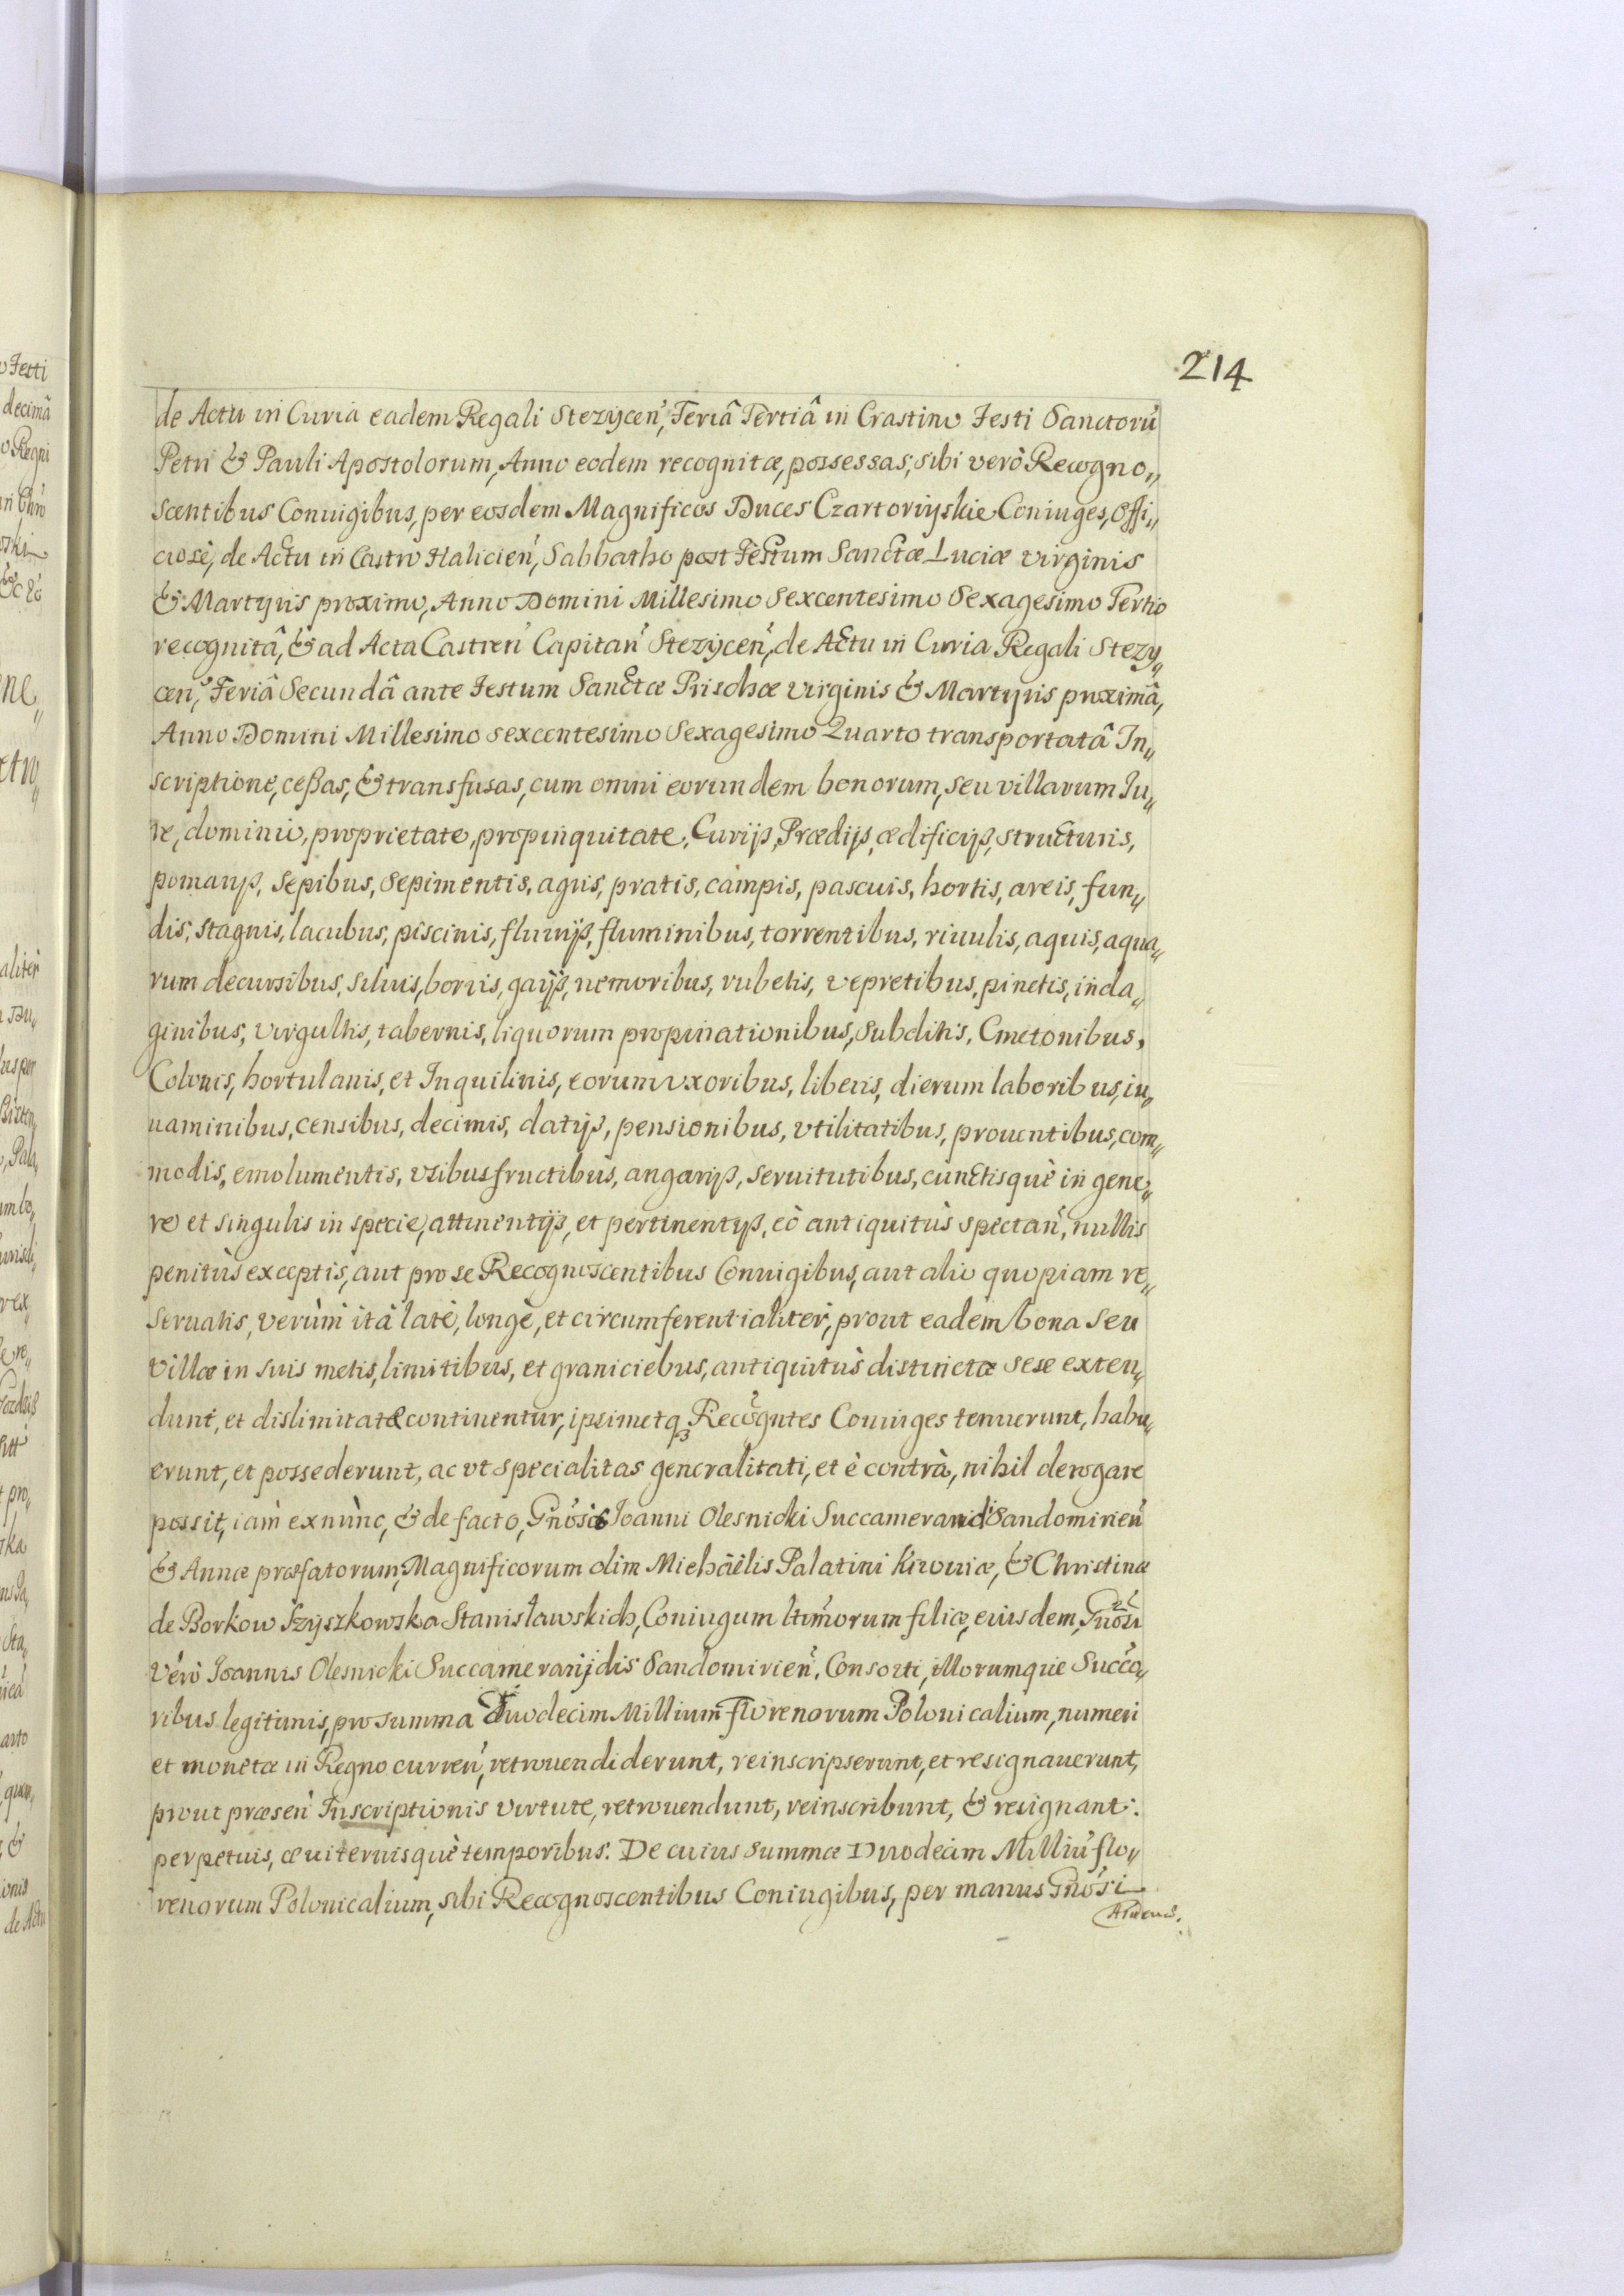 214
de Actu in Curia eadem Regali Stezycen̄, Feriâ Tertiâ in Crastino Festi Sanctorū
Petri & Pauli Apostolorum, Anno eodem recognitæ, possessas; sibi verò Recogno„
scentibus Coniugibus, per eosdem Magnificos Duces Czartoriyskie Coniuges, Offi„
ciosè, de Actu in Castro Halicien̄, Sabbatho post Festum Sanctæ Luciæ virginis
& Martyris proximo, Anno Domini Millesimo Sexcentesimo Sexagesimo Tertio
recognitâ, & ad Acta Castren̄ Capitan̄ Stezycen̄, de Actu in Curia Regali Stezy„
cen̄, Feriâ Secundâ ante Festum Sanctæ Prischæ virginis & Martyris proximâ,
Anno Domini Millesimo sexcentesimo Sexagesimo Quarto transportatâ In„
scriptione, ceßas, & transfusas, cum omni eorundem bonorum, seu villarum Iu„
re, dominio, proprietate, propinquitate, Curijs, Prædijs, ædificijs, structuris,
pomarijs, sepibus, sepimentis, agris, pratis, campis, pascuis, hortis, areis, fun„
dis, stagnis, lacubus, piscinis, fluuijs, fluminibus, torrentibus, riuulis, aquis, aqua„
rum decursibus, siluis, borris, gayjs, nemoribus, rubetis, vepretibus, pinetis, inda„
ginibus, virgultis, tabernis, liquorum propinationibus, subditis, Cmetonibus,
Colonis, hortulanis, et Inquilinis, eorum vxoribus, liberis, dierum laboribus, iu„
uaminibus, censibus, decimis, datijs, pensionibus, vtilitatibus, prouentibus, com„
modis, emolumentis, vsibusfructibus, angarijs, seruitutibus, cunctisquè in gene„
re et singulis in specie, attinentijs, et pertinentijs, eò antiquitùs spectan̄, nullis
penitùs exceptis, aut pro se Recognoscentibus Coniugibus, aut alio quopiam re„
seruatis, verùm ità latè, longè, et circumferentialiter, prout eadem bona seu
villæ in suis metis, limitibus, et graniciebus, antiquitùs distinctæ sese exten„
dunt, et dislimitatæ continentur, ipsimetq₃ Recōgntes Coniuges tenuerunt, habu„
erunt, et possederunt, ac vt specialitas generalitati, et è contrà, nihil derogare
possit, iàm exnùnc, & de facto, Gnōsis Ioanni Olesnicki Succameraridi Sandomirien̄
& Annæ præfatorum, Magnificorum olim Michäelis Palatini Kiiouiæ, & Christinæ
de Borkow Szyszkowska Stanisławskich, Coniugum ltīmorum filiæ, eiusdem, Gnōsi
Vérò Ioannis Olesnicki Succamerarijdis Sandomirien̄, Consorti, illorumque Succō„
ribus legitimis, pro summa Duodecim Millium florenorum Polonicalium, numeri
et monetæ in Regno curren̄, retrouendiderunt, reinscripserunt, et resignauerunt,
prout præsen̄ Inscriptionis virtute, retrouendunt, reinscribunt, & resignant:
perpetuis, æuiternisquè temporibus. De cuius summæ Duodecim Milliū flo„
renorum Polonicalium, sibi Recognoscentibus Coniugibus, per manus Gnōsi